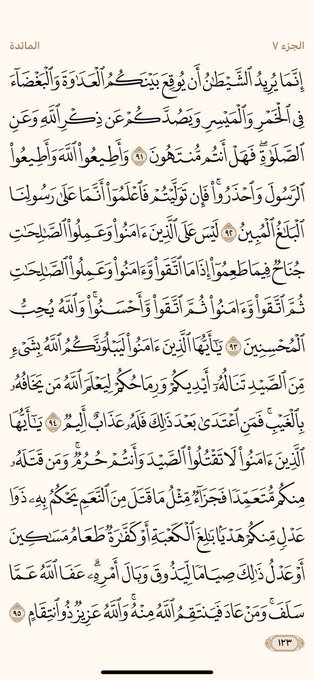 الجزء ٧ المائدة
إِنَّمَا يُرِيدُ ٱلشَّيْطَٰنُ أَن يُوقِعَ بَيْنَكُمُ ٱلْعَدَٰوَةَ وَٱلْبَغْضَآءَ
فِى ٱلْخَمْرِ وَٱلْمَيْسِرِ وَيَصُدَّكُمْ عَن ذِكْرِ ٱللَّهِ وَعَنِ
ٱلصَّلَوٰةِ ۖ فَهَلْ أَنتُم مُّنتَهُونَ ٩١ وَأَطِيعُوا۟ ٱللَّهَ وَأَطِيعُوا۟
ٱلرَّسُولَ وَٱحْذَرُوا۟ ۚ فَإِن تَوَلَّيْتُمْ فَٱعْلَمُوٓا۟ أَنَّمَا عَلَىٰ رَسُولِنَا
ٱلْبَلَٰغُ ٱلْمُبِينُ ٩٢ لَيْسَ عَلَى ٱلَّذِينَ ءَامَنُوا۟ وَعَمِلُوا۟ ٱلصَّٰلِحَٰتِ
جُنَاحٌ فِيمَا طَعِمُوٓا۟ إِذَا مَا ٱتَّقَوا۟ وَّءَامَنُوا۟ وَعَمِلُوا۟ ٱلصَّٰلِحَٰتِ
ثُمَّ ٱتَّقَوا۟ وَّءَامَنُوا۟ ثُمَّ ٱتَّقَوا۟ وَّأَحْسَنُوا۟ ۗ وَٱللَّهُ يُحِبُّ
ٱلْمُحْسِنِينَ ٩٣ يَٰٓأَيُّهَا ٱلَّذِينَ ءَامَنُوا۟ لَيَبْلُوَنَّكُمُ ٱللَّهُ بِشَىْءٍ
مِّنَ ٱلصَّيْدِ تَنَالُهُۥٓ أَيْدِيكُمْ وَرِمَاحُكُمْ لِيَعْلَمَ ٱللَّهُ مَن يَخَافُهُۥ
بِٱلْغَيْبِ ۚ فَمَنِ ٱعْتَدَىٰ بَعْدَ ذَٰلِكَ فَلَهُۥ عَذَابٌ أَلِيمٌ ٩٤ يَٰٓأَيُّهَا
ٱلَّذِينَ ءَامَنُوا۟ لَا تَقْتُلُوا۟ ٱلصَّيْدَ وَأَنتُمْ حُرُمٌ ۚ وَمَن قَتَلَهُۥ
مِنكُم مُّتَعَمِّدًا فَجَزَآءٌ مِّثْلُ مَا قَتَلَ مِنَ ٱلنَّعَمِ يَحْكُمُ بِهِۦ ذَوَا
عَدْلٍ مِّنكُمْ هَدْيًۢا بَٰلِغَ ٱلْكَعْبَةِ أَوْ كَفَّٰرَةٌ طَعَامُ مَسَٰكِينَ
أَوْ عَدْلُ ذَٰلِكَ صِيَامًا لِّيَذُوقَ وَبَالَ أَمْرِهِۦ ۗ عَفَا ٱللَّهُ عَمَّا
سَلَفَ ۚ وَمَنْ عَادَ فَيَنتَقِمُ ٱللَّهُ مِنْهُ ۗ وَٱللَّهُ عَزِيزٌ ذُو ٱنتِقَامٍ ٩٥
١٢٣